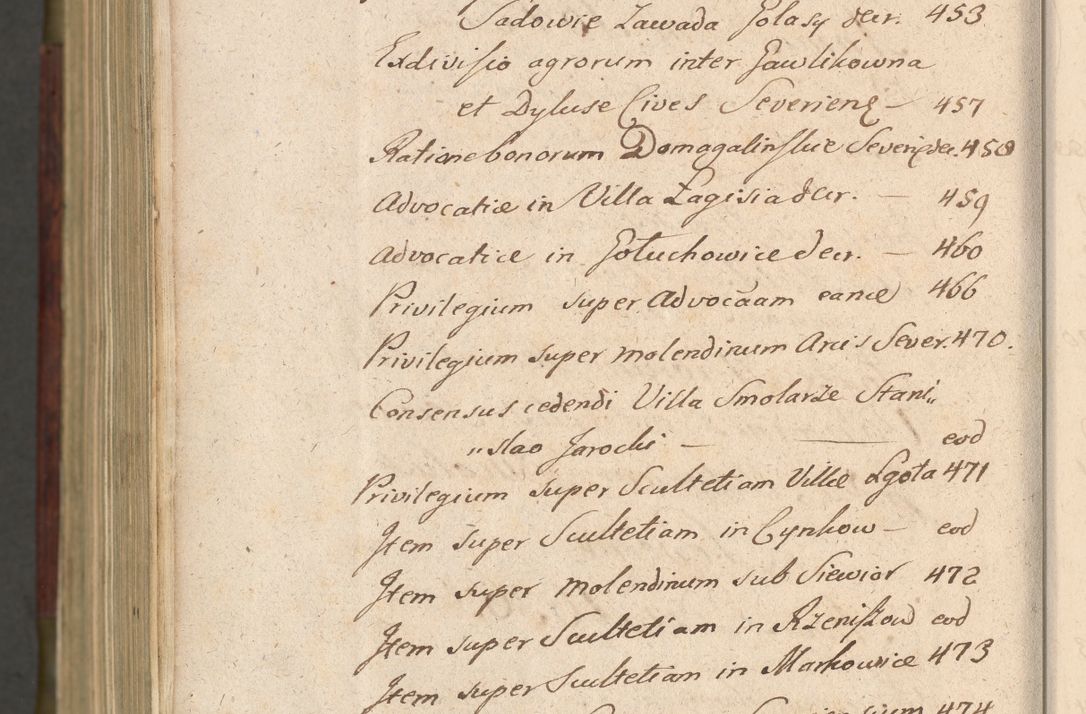 Sadowie Zawada Golasy decr. 453
Exdivisio agrorum inter Gawlikowna
et Dyluse Cives Severienę – 457
Ratione bonorum Domagalinskie Severięn. 458
Advocatiæ in Villa Łagisia decr. — 459
Advocatice in Gołuchowice decr. — 460
Privilegium super Advocãam eance 466
Privilegium super molendinum Arcis Sever. 470.
Consensus cedendi Villa Smolarze Stani„
„slao Jarocki — — eod
Privilegium super Scultetiam Villæ Lgota 471
Item super Scultetiam in Cynkow – eod
Item super molendinum sub Siewior 472
Item super Scultetiam in Rzeniszow eod
Item super Scultetiam in Markowice 473
474